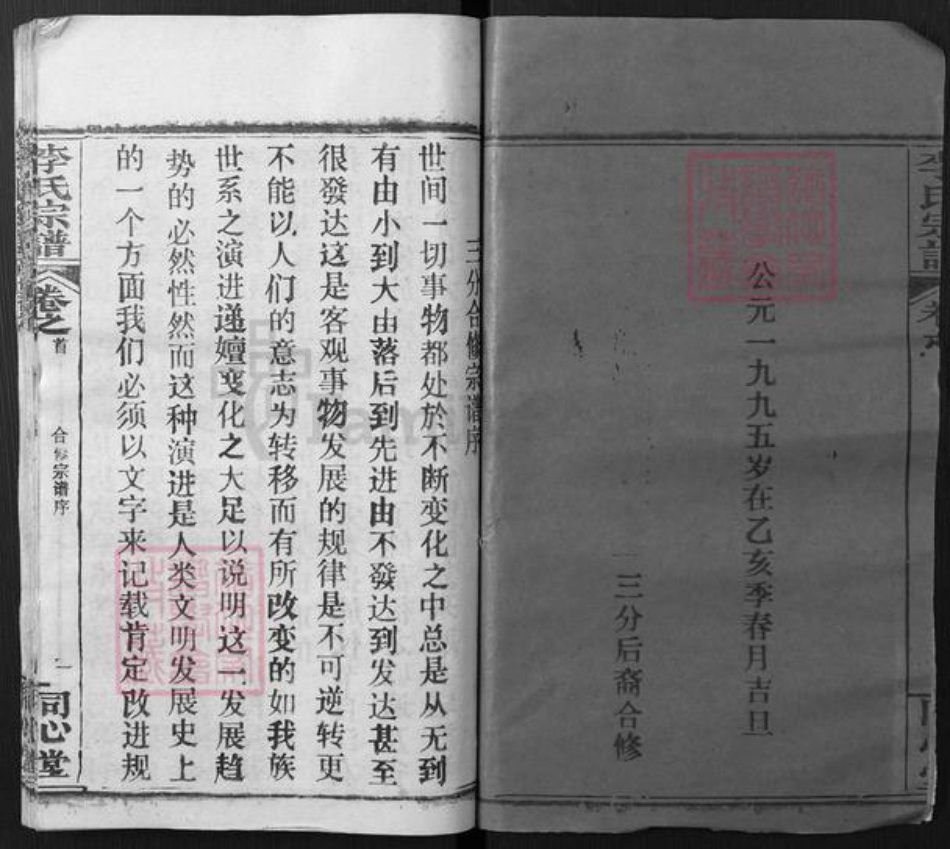 公元一九九五岁在乙亥季春月吉旦
三分后裔合修
三分合修宗谱序
世间一切事物都处於不断变化之中总是从无到
有由小到大由落后到先进由不發达到发达甚至
很發达这是客观事物发展的规律是不可逆转更
不能以人们的意志为转移而有所改变的如我族
世系之演进递嬗变化之大足以说明这一发展趋
势的必然性然而这种演进是人类文明发展史上
的一个方面我们必须以文字来记载肯定改进规
李氏宗谱
卷之首
合修宗谱序
一
同心堂